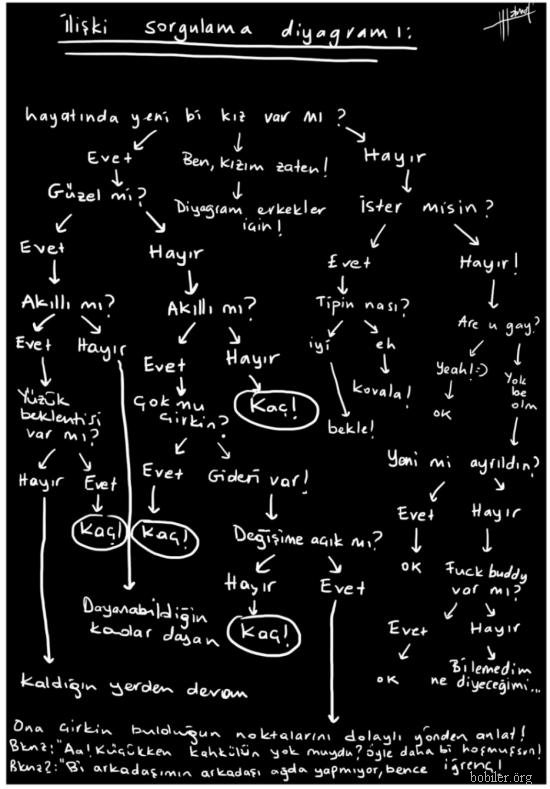 ilişki sorgulama diyagramı:
hayatında yeni bi kız var mı?
Evet
Ben, kızım zaten!
Hayır
Güzel mi?
Diyagram erkekler
için!
İster misin?
Evet
Hayır
Evet
Hayır!
Akıllı mı?
Akıllı mı?
Tipin nası?
Are u gay?
Evet
Hayır
Evet
Hayır
iyi
eh
Yeah! :)
Yok
be
olm
Yüzük
beklentisi
var mı?
Çok mu
çirkin?
Kaç!
bekle!
Kovala!
OK
Hayır
Evet
Evet
Gideri var!
Yeni mi ayrıldın?
Kaç!
Kaç!
Değişime açık mı?
Evet
Hayır
Dayanabildiğin
kadar dayan
Hayır
Evet
OK
Fuck buddy
var mı?
Kaç!
Evet
Hayır
kaldığın yerden devam
OK
Bilemedim
ne diyeceğimi...
Ona çirkin bulduğun noktalarını dolaylı yönden anlat!
Bknz1:"Aa! Küçükken kahkülün yok muydu? öyle daha bi hoşmuşsun!
Bknz2:"Bi arkadaşımın arkadaşı ağda yapmıyor, bence iğrenç!
bobiler.org